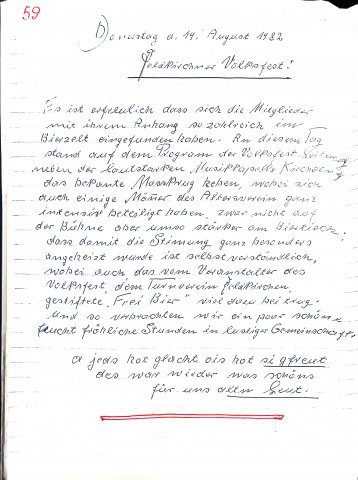 59
Donnerstag d. 19. August 1982
Feldkirchner Volksfest!
Es ist erfreulich dass sich die Mitglieder
mit ihrem Anhang so zahlreich im
Bierzelt eingefunden haben. An diesem Tag
stand auf dem Program der Volksfest Leitung
neben der lautstarken Musikkapelle
das bekante Masskrug heben, wobei sich
auch einige Mäner des Altersverein ganz
intensiv beteiligt haben, zwar nicht auf
der Bühne aber umso stärker am Biertisch,
dass damit die Stimung ganz besonders
angeheizt wurde ist selbstverständlich,
wobei auch das vom Veranstalter des
Volksfest, dem Turnverein Feldkirchen,
gestiftete "Frei Bier" viel dazu bei trug.
Und so verbrachten wir ein paar schöne
feucht fröhliche Stunden in lustiger Gemeinschaft.
a jeds hot glacht ois hot sigfreut
des war wieder was schöns
für uns altn Leut.